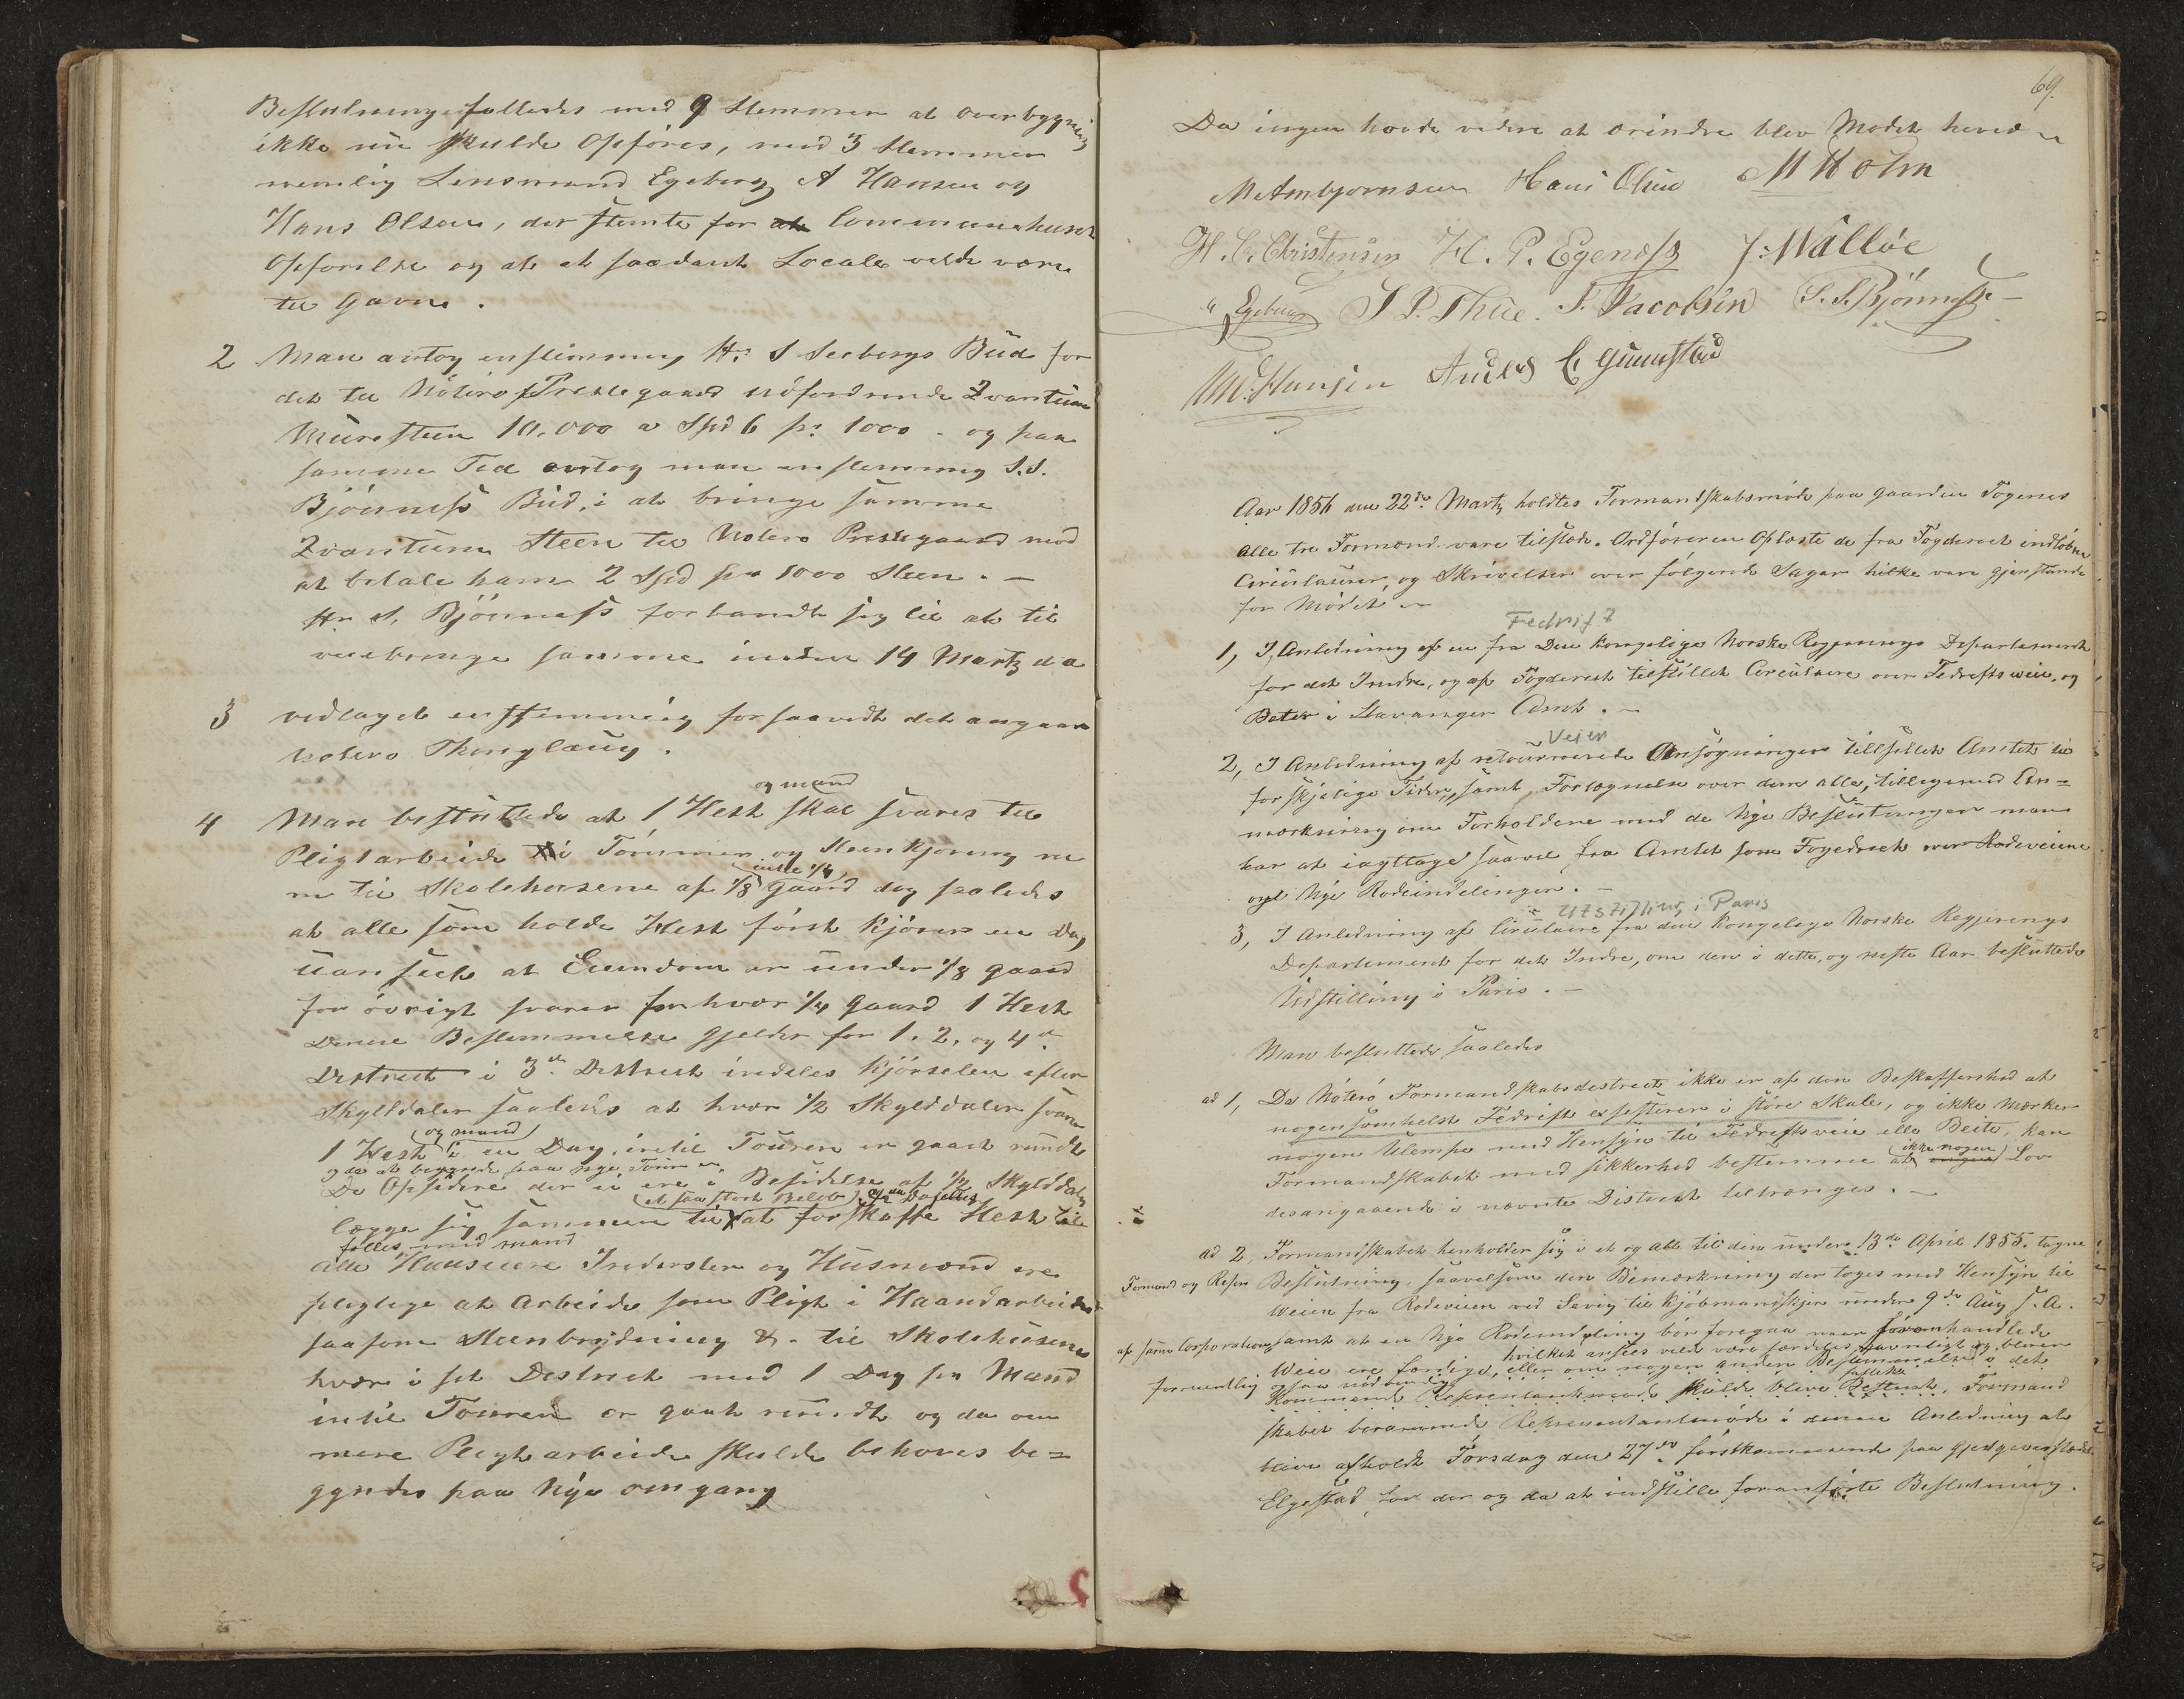 Beslutning falledes med 9 Stemmer at overbygning
ikke nu skulde opföres, med 3 Stemmer
nemlig Lensmand Egeberg A Hansen og
Hans Olsen, der stemte for at Communehuset
opförelse og at et saadant Locale vilde være
til Gavn.
2 Man antog enstemmig Hr S Seebergs Bud for
det til Nöterö Prestegaard udfordrende Qvantum
Muursteen 10,000 a Spd 6 pr 1000 - og paa
samme Tid antog man enstemmig S.S.
Bjönness Bud, i at bringe samme
Qvantum Steen til Nöterö Prestegaard mod
at betale ham 2 Spd pr 1000 Steen. -
Hr S. Bjönness forbandt sig til at til
veiebringe samme inden 14 Martz d a
3 vedtaget enstemmig forsaavidt det angaar
Nöterö Thinglaug.
og mand
4 Man besluttede at 1 Hest skal svares til
Pligtarbeide i Tömmer og Steenkjöring
indtil 1/4
til Skolehusene af 1/8 Gaard dog saaledes
at alle som holde Hest först kjörer en Dag
uanseet at Eiendom er under 1/8 gaard
for övrigt svarer for hver 1/4 Gaard 1 Hest
Denne Bestemmelse gjelder for 1. 2, og 4de
District i 3de District indeles Kjörselen efter
Skylddaler saaledes at hver 1/2 Skylddaler svarer
og mand
1 Hest i en Dag, indtil Touren er gaaet rundt
og da at begynde paa nye Tour
De Opsidere der ei ere i Besidelse af 1/2 Skylddaler
et saa stort Belöb
lægge sig sammen til at forskaffe Hest
felles med mand
alle Huuseiere Inderster og Husmænd ere
pligtige at arbeide som Pligt i Haandarbeide
saasom Steenbrydning &. til Skolehusene
hver i sit District med 1 Dag pr Mand
indtil Touren er gaat rundt og da om
mere Pligtarbeide skulde behöves be=
gyndes paa nye omgang
69.
Da ingen havde videre at erindre blev Mödet hevet
M Ambjornsen Hans Olsen M Holm
H. C. Christensen H. P. Egenæss J: Walløe
Egeberg J P. Thue. P. Jacobsen S. S. Bjönness
And. Hansen Anders C Gunnestad
Aar 1856 den 22de Martz holdtes Formandskabsmöde paa Gaarden Togenes
Alle tre Formænd vare tilstede. Ordföreren oplæste de fra Fogderiet indlöbne
Circulairer og Skrivelser over fölgende Sagar hvilke vare Gjenstande
for Mödet
Fedrift
1, I Anledning af en fra Den Kongelige Norske Regjerings Departement
for det Indre, og af Fogderiet tilstillet Circulaire over Fedriftsveie, og
Beter i Stavanger Amt. -
Veier
2, I Anledning af retournerede Ansögninger tillstillet Amtet til
forskjelige Tider, samt Fortegnelse over dem alle, tilligemed An=
mærkning om Forholdene med de nye Beslutninger man
har at iagttage saavel fra Amtet som Fogedriet over Rodeveiene
og nye Rodeindelinger. -
Utstilling i Paris
3, I Anledning af Circulaire fra den Kongelige Norske Regjerings
Departement for det Indre, om den i dette, og neste Aar besluttede
Udstilling i Paris. -
Man besluttede saaledes
ad 1, Da Nöterö Formandskabsdistrict ikke er af den Beskaffenhed at
nogensomhelst Fedrift exsisterer i störe Skale, og ikke mærker
nogen Ulempe med Hensyn til Fedriftsveie elle Beite, kan
ikke nogen
Formandskabet med sikkerhed bestemme at ingen Lov
desangaaende i nævnte District tiltrænges. -
ad 2, Formandskabet henholder sig i et og alt til den under 13de April 1855. tagne
Formænd og Repræ Beslutning, saavelsom den Bemærkning der toges med Hensyn til
Weien fra Rodeveien ved Sevig til Kjöbmandskjær under 9de Aug s. A.
af samme Corporation samt at en nye Rodeindeling bör foregaa naar foromhandlede
hvilket ansees vilde være særdeles gavnligt og
Weie ere færdige, eller om nogen anden Bestemmelse i det
formentlig ogsaa nödvendig
kommende Repræsentantmöde skulde blive Besluttet. Formand
skabet berammede Repræsentantmöde i denne Anledning at
blive afholdt Torsdag den 27de förstkommende paa Gjestgiverstedet
Elgestad for der og da at indstille foranförte Beslutning.